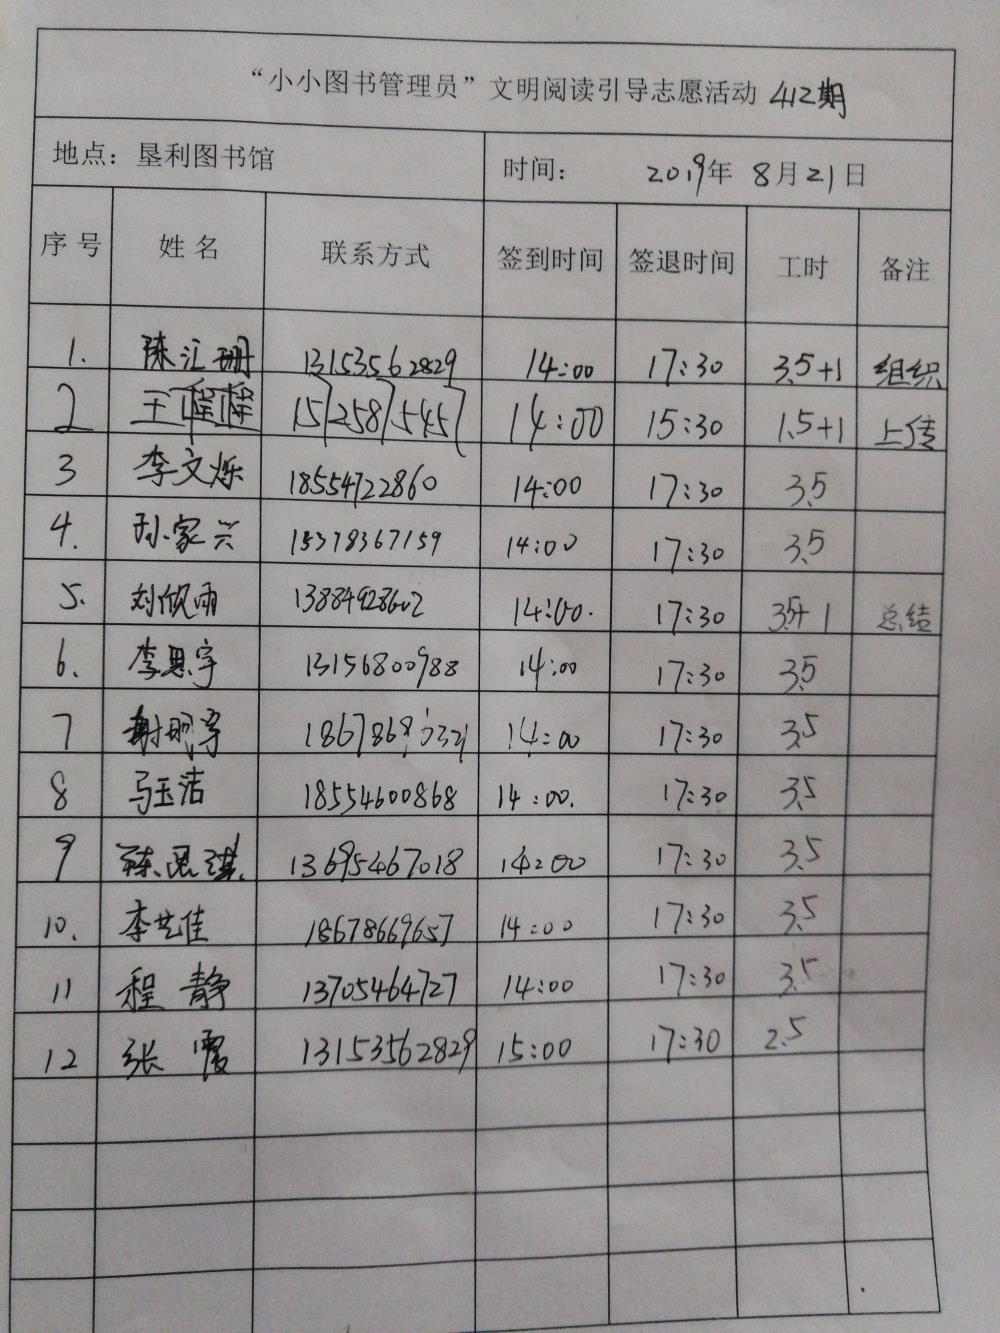 “小小图书管理员”文明阅读引导志愿活动 412期
地点：垦利图书馆 时间： 2019年 8月21日
序号 姓名 联系方式 签到时间 签退时间 工时 备注
1. 陈汇珊 13153562829 14:00 17:30 3.5+1 组织
2 王 15725871545 14:00 15:30 1.5+1 上传
3 李文烁 18554722860 14:00 17:30 3.5
4. 孙家兴 15378367159 14:00 17:30 3.5
5. 刘欣雨 13884928602 14:00. 17:30 3.5+1 总结
6. 李思宇 13156800988 14:00 17:30 3.5
7 谢明 14:00 17:30 3.5
8 马玉洁 18554600868 14:00. 17:30 3.5
9 陈思琪 13695467018 14:00 17:30 3.5
10. 李艺佳 18678669657 14:00 17:30 3.5
11 程静 13705464727 14:00 17:30 3.5
12 张霞 13153562829 15:00 17:30 2.5